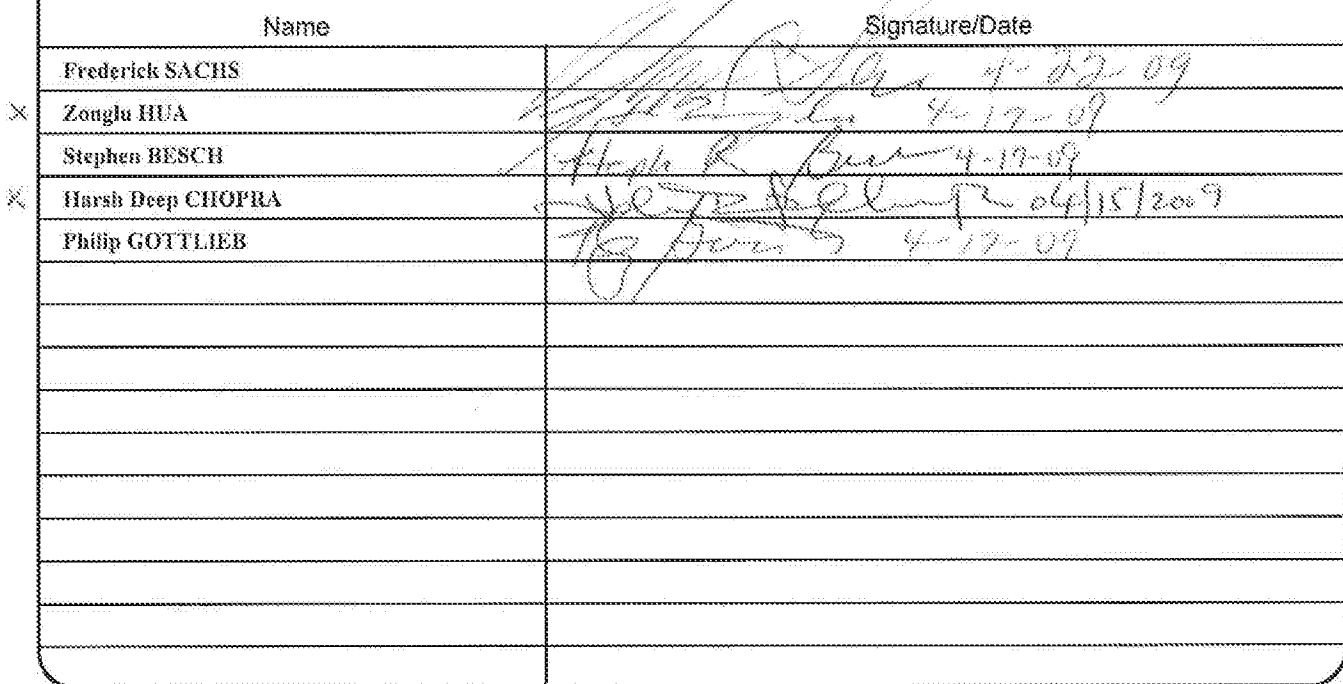 Name Signature/Date
Frederick SACHS 4-22-09
× Zonglu HUA 4-17-09
Stephen BESCH Stephen R Besch 4-17-09
× Harsh Deep CHOPRA 04/15/2009
Philip GOTTLIEB 4-17-09